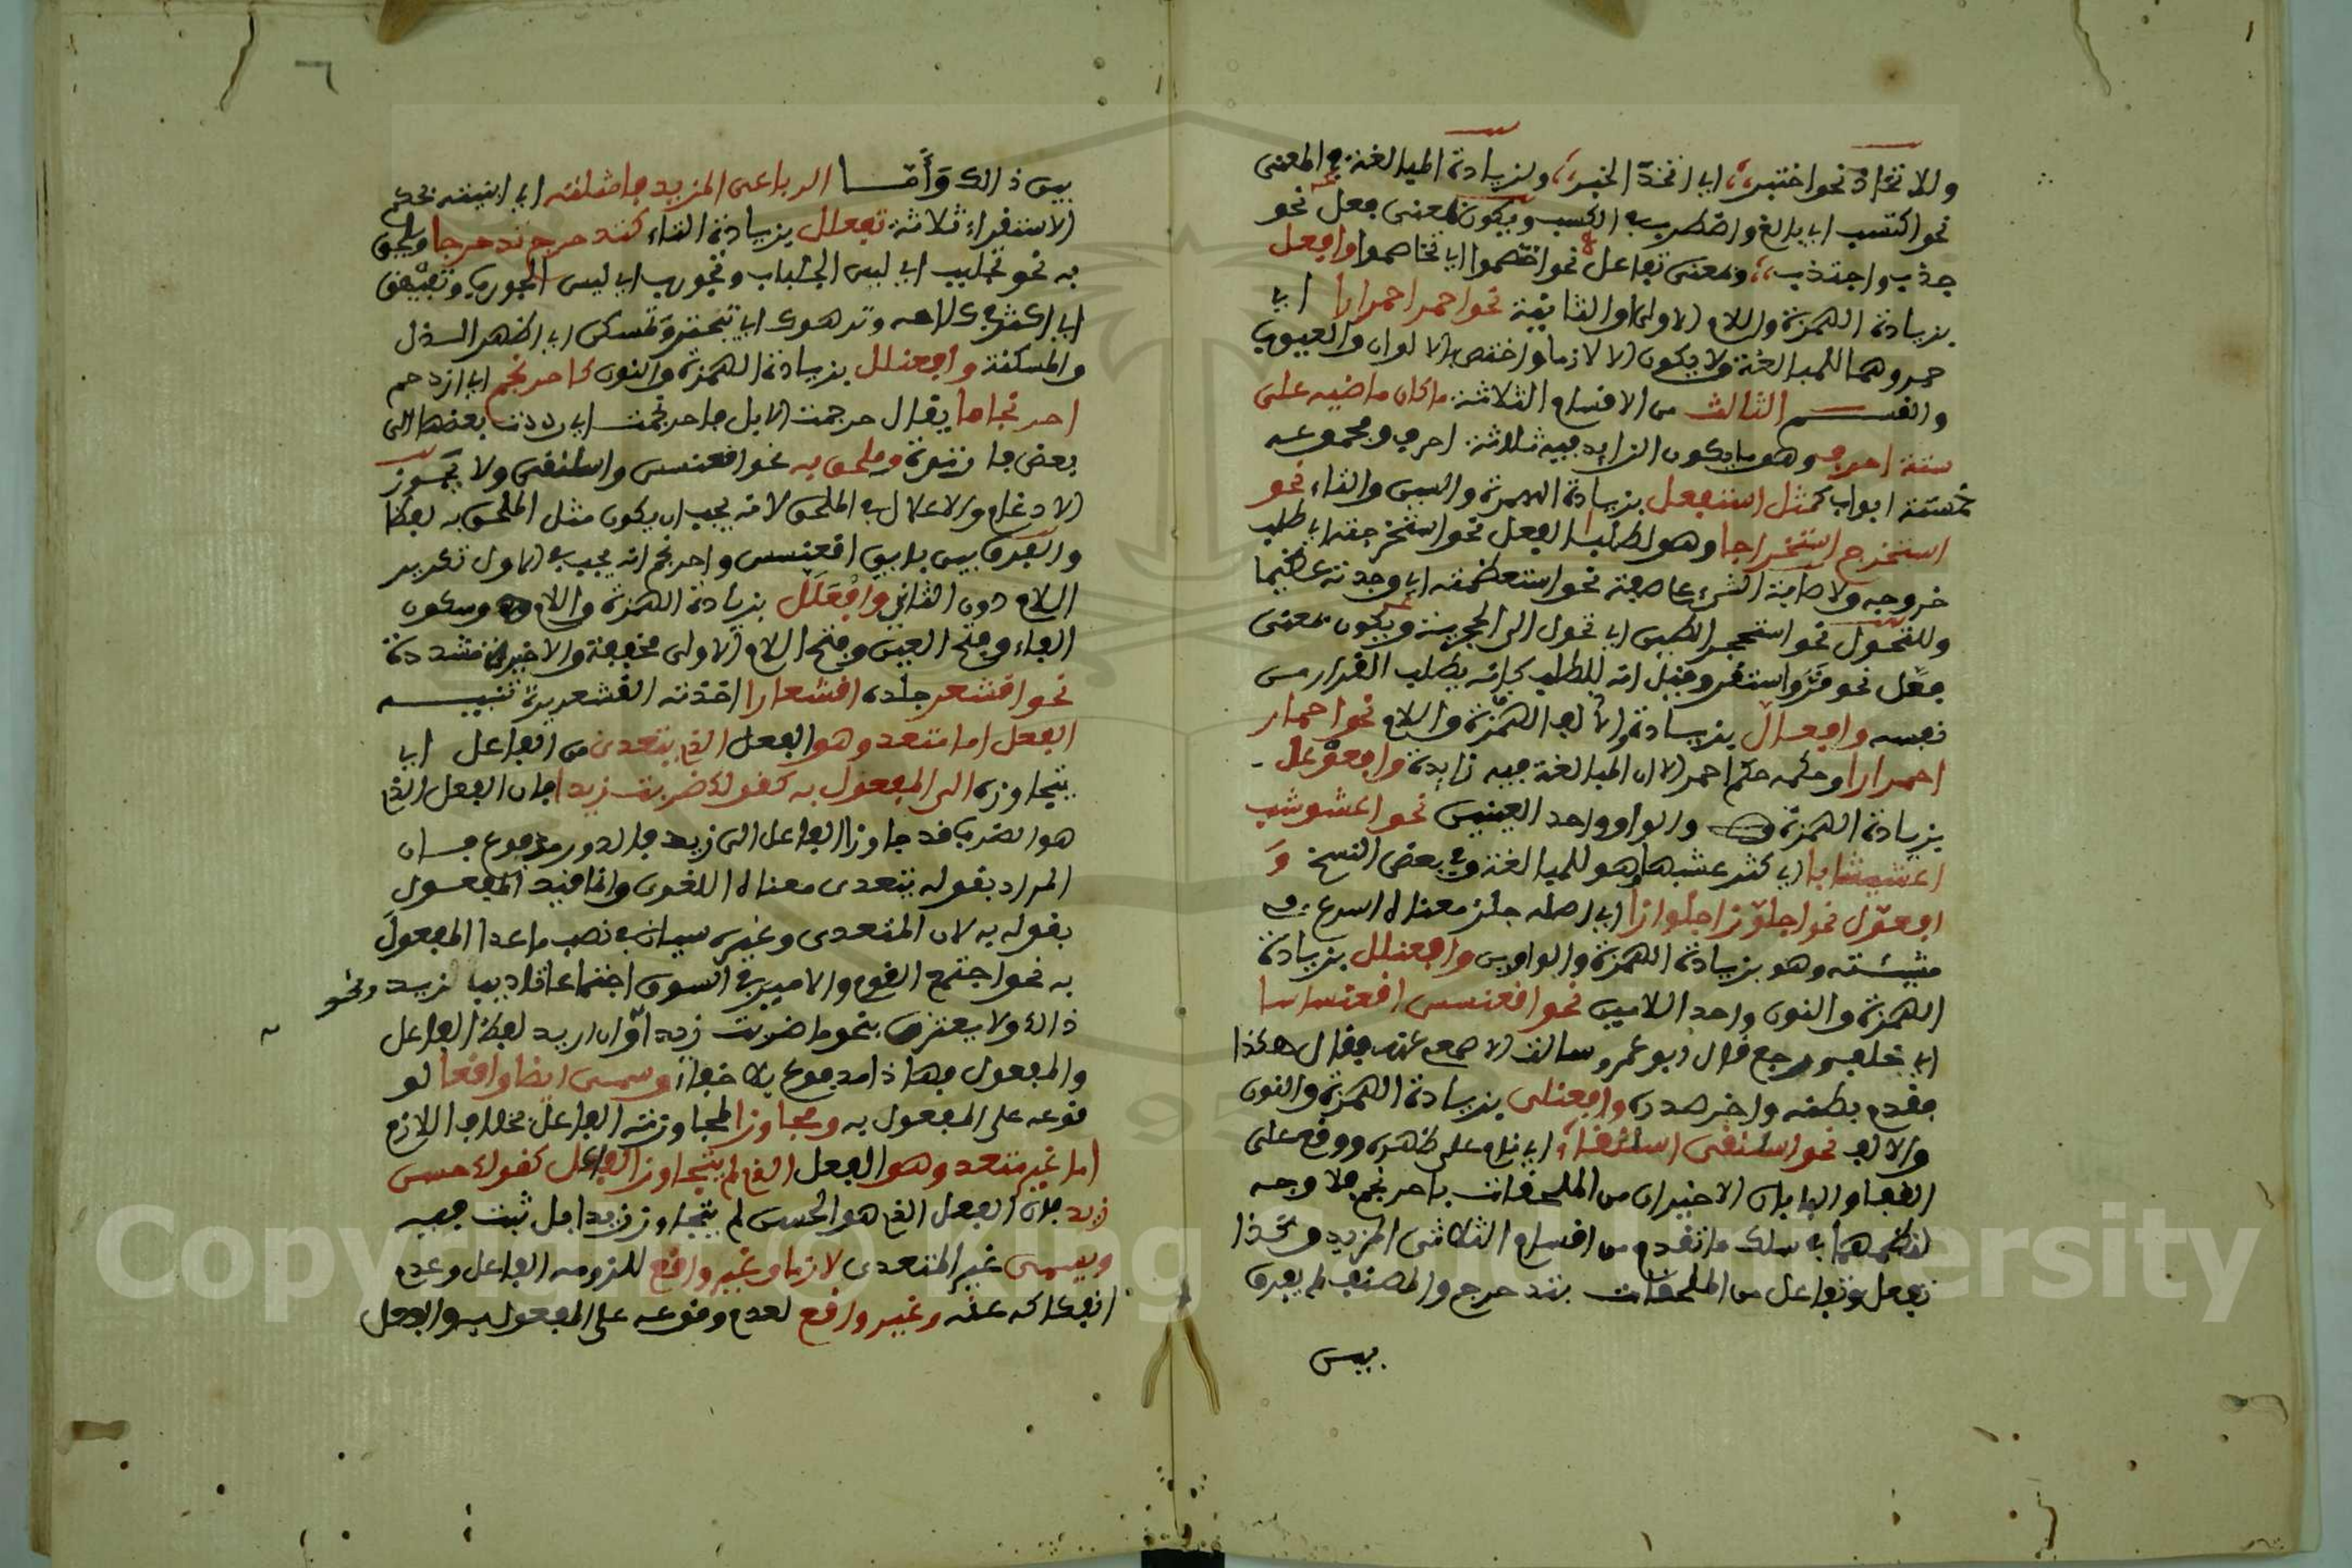 وللاتخاذ نحو اختبز اي اتخذ الخبز ولزيادة المبالغة في المعنى
نحو اكتسب اي بالغ واضطرب في الكسب ويكون بمعنى فعل نحو
جذب واجتذب وبمعنى تفاعل نحو اختصموا اي تخاصموا وافعل
بزيادة الهمزة واللام الاولى او الثانية نحو احمر احمرارا اي
حمر وهما للمبالغة ولا يكون الا لازما واختص بالالوان والعيوب
والقسم الثالث من الاقسام الثلاثة ما كان ماضيه على
ستة احرف وهو ما يكون الزايد فيه ثلاثة احرف ومجموعه
خمسة ابواب كمثل استفعل بزيادة الهمزة والسين والتاء نحو
استخرج استخراجا وهو لطلب الفعل نحو استخرجته اي طلب
خروجه ولاصابة الشيء على صفة نحو استعظمته اي وجدته عظيما
وللتحول نحو استحجر الطين اي تحول الى الحجرية ويكون بمعنى
فعل نحو قر واستقر وقيل انه للطلب كانه يطلب القرار من
نفسه وافعال بزيادة الالف الهمزة واللام نحو احمار
احمرارا وحكمه حكم احمر الا ان المبالغة فيه زايدة وافعوعل
بزيادة الهمزة والواو واحد العينين نحو اعشوشب
اعشيشابا اي كثر عشبها وهو للمبالغة وفي بعض النسخ و
افعول نحو اجلوز اجلوازا اي اصله جلز معناه اسرع في
مشيته وهو بزيادة الهمزة والواوين وافعنلل بزيادة
الهمزة والنون واحد اللامين نحو اقعنسس اقعنساسا
اي خلف ورجع قال ابو عمرو سالت الاصمعي عنه فقال هكذا
فقدم بطنه واخر صدره وافعنلى بزيادة الهمزة والنون
والالف نحو اسلنقى اسلنقاء اي نام على ظهره ووقع على
القفا والبابان الاخيران من الملحقات باحرنجم فلا وجه
لنظمهما في سلك ما تقدم من اقسام الثلاثي المزيد وكذا
تفعل وتفاعل من الملحقات بتدحرج والمصنف لم يفرق
بين
بين ذالك وأما الرباعي المزيد فامثلته اي ابنيته بحكم
الاستقراء ثلاثة تفعلل بزيادة التاء كتدحرج تدحرجا ويلحق
به نحو تجلبب اي لبس الجلباب وتجورب اي لبس الجورب وتفيهق
اي اكثر في كلامه وترهوك اي تبختر وتمسكن اي اظهر الذل
والمسكنة وافعنلل بزيادة الهمزة والنون كاحرنجم اي ازدحم
احرنجاما يقال حرجمت الابل فاحرنجمت اي رددت بعضها الى
بعض فارتدت وملحق به نحو اقعنسس واسلنقى ولا يجوز
الادغام والاعلال في الملحق لانه يجب ان يكون مثل الملحق به لفظا
والفرق بين بابي اقعنسس واحرنجم انه يجب في الاول تكرير
اللام دون الثاني وافعلل بزيادة الهمزة واللام وسكون
الفاء وفتح العين وفتح اللام الاولى مخففة والاخيرة مشددة
نحو اقشعر جلده اقشعرارا اخذته القشعريرة تنبيه
الفعل اما متعد وهو الفعل الذي يتعدى من الفاعل اي
يتجاوزه الى المفعول به كقولك ضربت زيدا فان الفعل الذي
هو الضرب قد جاوز الفاعل الى زيد فالدور مدفوع فان
المراد بقوله يتعدى معناه اللغوي وانما قيد المفعول
بقوله به لان المتعدى وغيره سيان في نصب ما عدا المفعول
به نحو اجتمع القوم والامير في السوق اجتماعا تاديبا لزيد ونحو
ذالك ولا يعترض بنحو ما ضربت زيدا لان اريد لفظ الفاعل
والمفعول فهاذا مدفوع بلا خفاء ويسمى ايضا واقعا لو
قوعه على المفعول به ومجاوزا لمجاوزته الفاعل بخلاف اللازم
اما غير متعد وهو الفعل الذي لم يتجاوز الفاعل كقولك حسن
زيد فان الفعل الذي هو الحسن لم يتجاوز زيدا بل ثبت فيه
ويسمى غير المتعدى لازما وغير واقع للزومه الفاعل وعدم
انفكاكه عنه وغير واقع لعدم وقوعه على المفعول به والفعل
Copyright © King Saud University